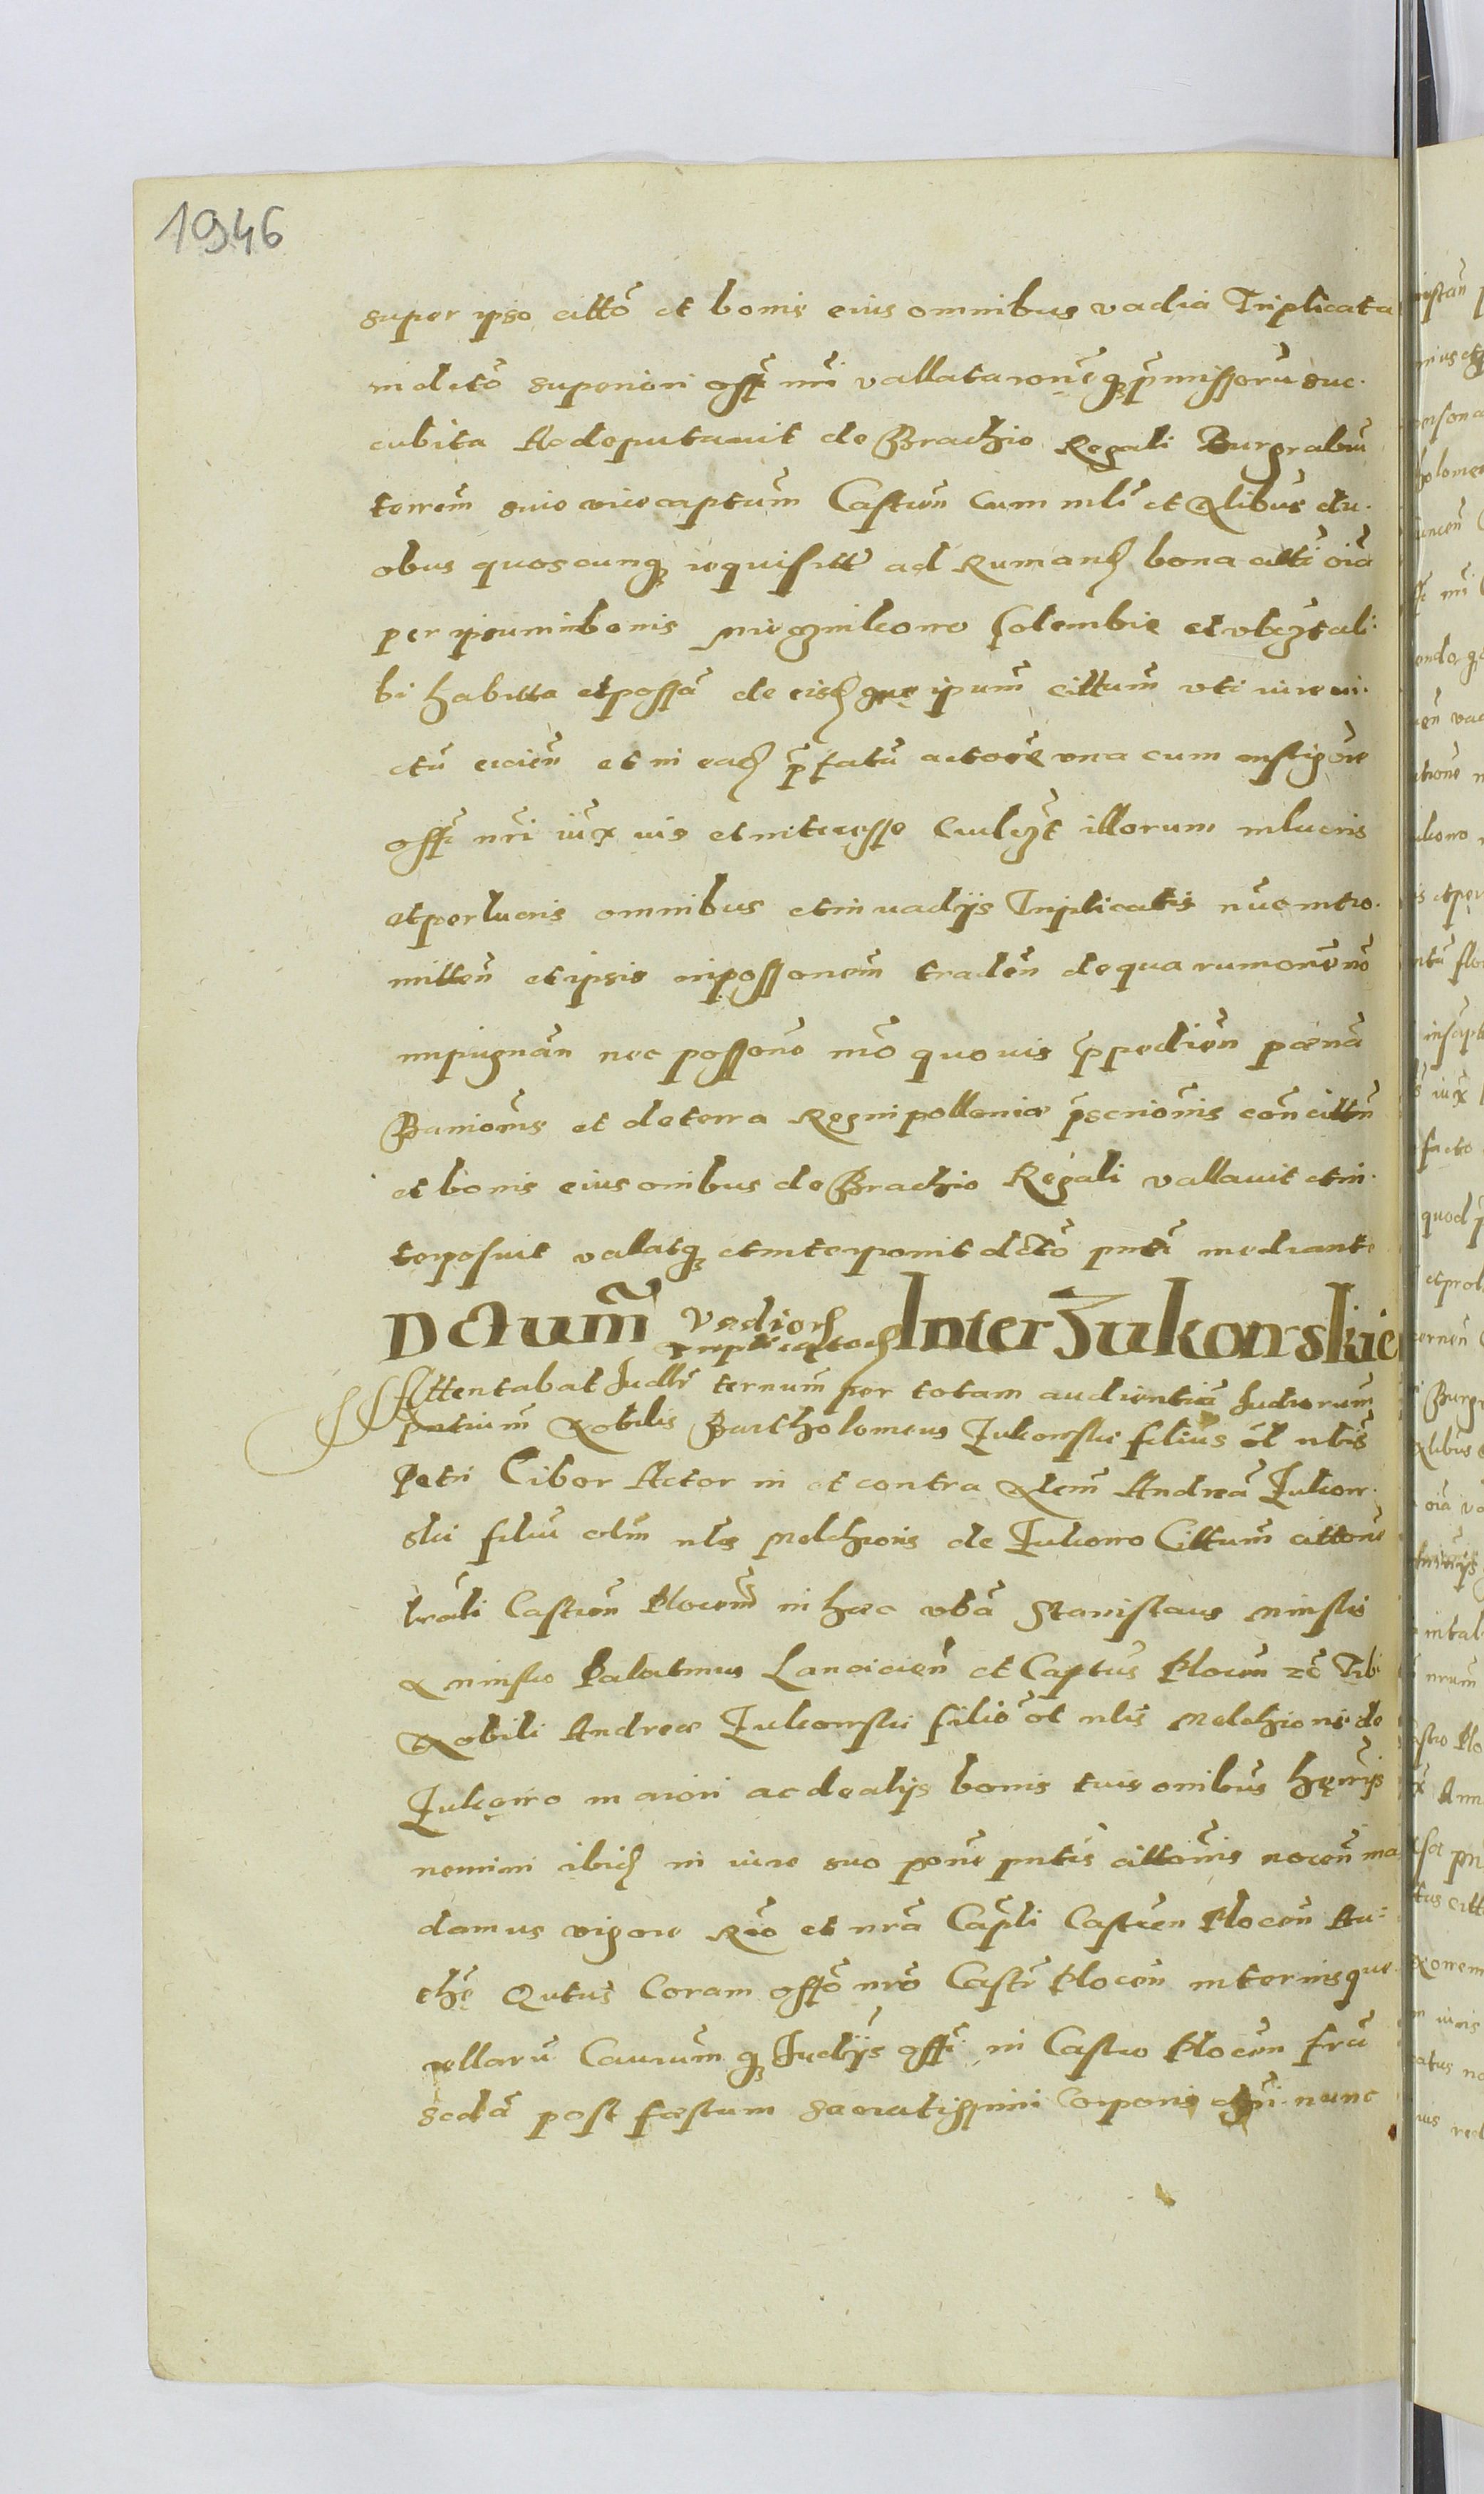 1946
super ipso citto et bonis eius omnibus vadia Triplicata
in dcto superiori offi nri vallata rone q pmissoru suc.
cubita Ac deputavit de Brachio Regali Burgrabiu
terrem sive vicecaptum Castren cum mli et Nlibus du.
obus quoscunq requisitt ad Rumand bona citti oia
per ipsum in bonis Solembie et vbqzt ali.
bi habitta et possa de eisd que ipum cittum vti iure vi.
ctu eicien et in ead pfatu actore vna cum instigore
offi nri iux vis et interesse cuilqzt illorum in lucris
et perlucris omnibus et in vadijs Triplicatis nue intro.
mitten et ipsis in possonem traden de qua rumone no
impugnan nec possone mo quovis ppedien poena
Banionis et de terra Regni pollonia pscrionis con cittm
et bonis eius onibus de Brachio Regali vallavit et in.
terposuit vallatq et interponit dcto pnti mediante
Dctum Vadiord triplicatord Inter Zukowskie
Attentabat Judlr ternum per totam audientia Judiorum
petium Nobilis Bartholomeus Zukowski filius ol nlis
Petri Cibor Actor in et contra Nlem Andrea Zukow.
ski filiu olm nlis Melchioris de Zukowo Cittum cittone
lrali Castren Plocen in haec vba Stanislaus Minski
N minsko Palatinus Lancicien et Captus Plocen zc Tibi
Nobili Andreae Zukowski filio ol nlis Melchioris de
Zukowo maiori ac de alijs bonis tuis onibus herijs
nemini ibid in iure suo pone pntis cittonis nocen ma
damus vigore Reo et nra Capli Castren Plocen Au-
the Qutus Coram offo nro Castri Plocen in terminis que
rellaru Cauarum q Judijs offi in Castro Plocen fria
scda post festum sacratissimi Corporis nunc